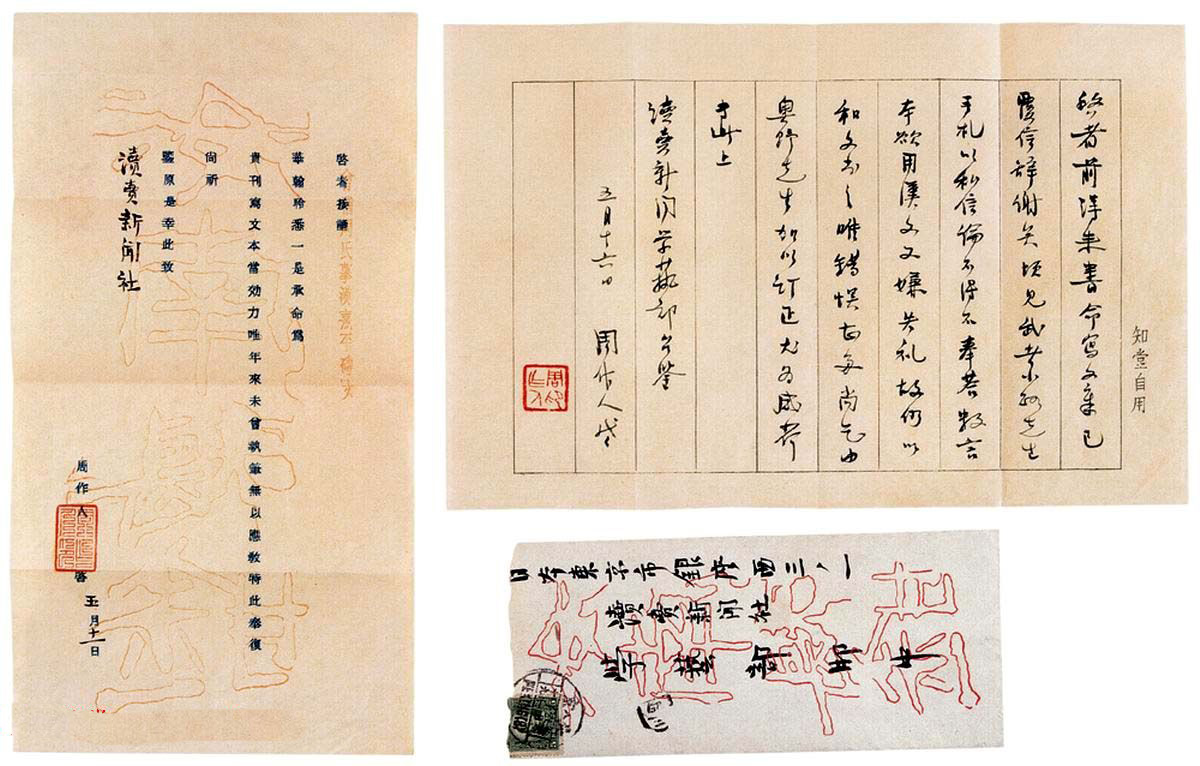 啓者接讀
華翰聆悉一是承命爲
貴刊寫文本當効力唯年來未曾執筆無以應教特此奉復
尚祈
鑒原是幸此致
讀賣新聞社
周作人啓
五月十一日
知堂自用
啓者前得来書命寫文章已
覆信辞謝矣頃見武者小路先生
手札以私信 不得不奉答数言
本欲用漢文又嫌失礼故仍以
和文書之唯錯悮甚多尚乞由
奥野先生加以訂正尤為感荷
専此上
讀賣新聞学藝部台鑒
五月十六日 周作人啓
日本東京市銀座西三ノ一
讀賣新聞社
学藝部御中